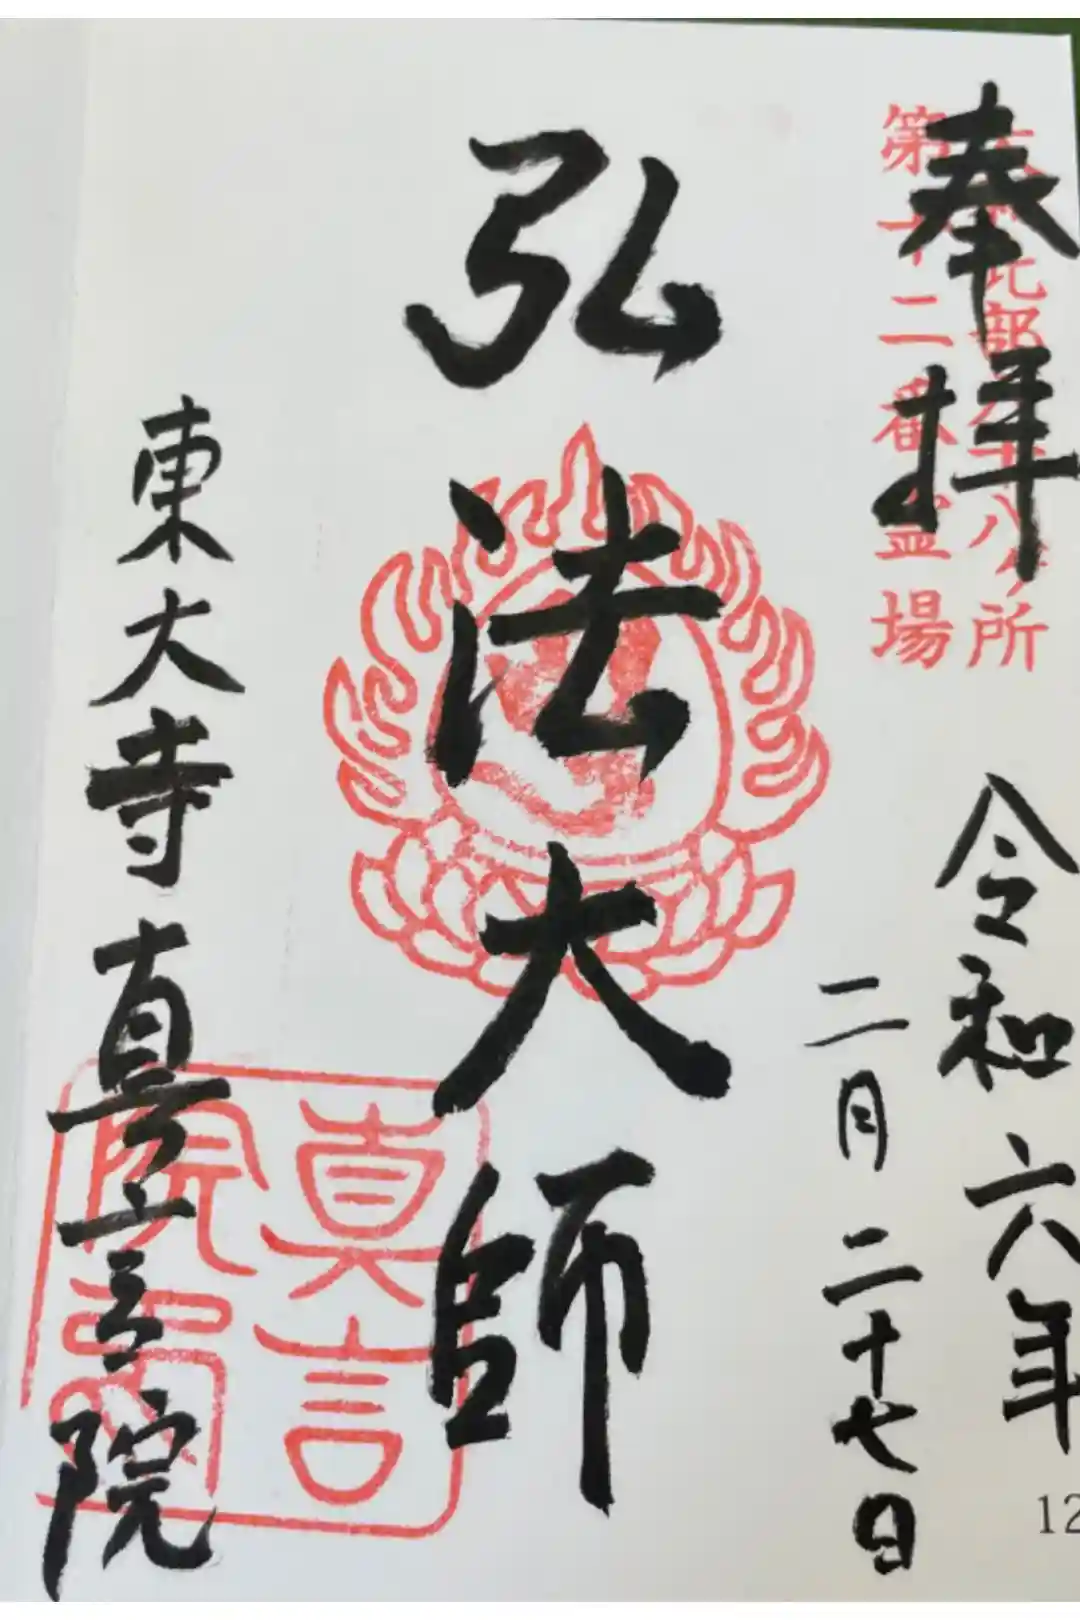 奉拝
所
第十二番霊場
令和六年
二月二十七日
弘法大師
東大寺真言院
真言
院
12